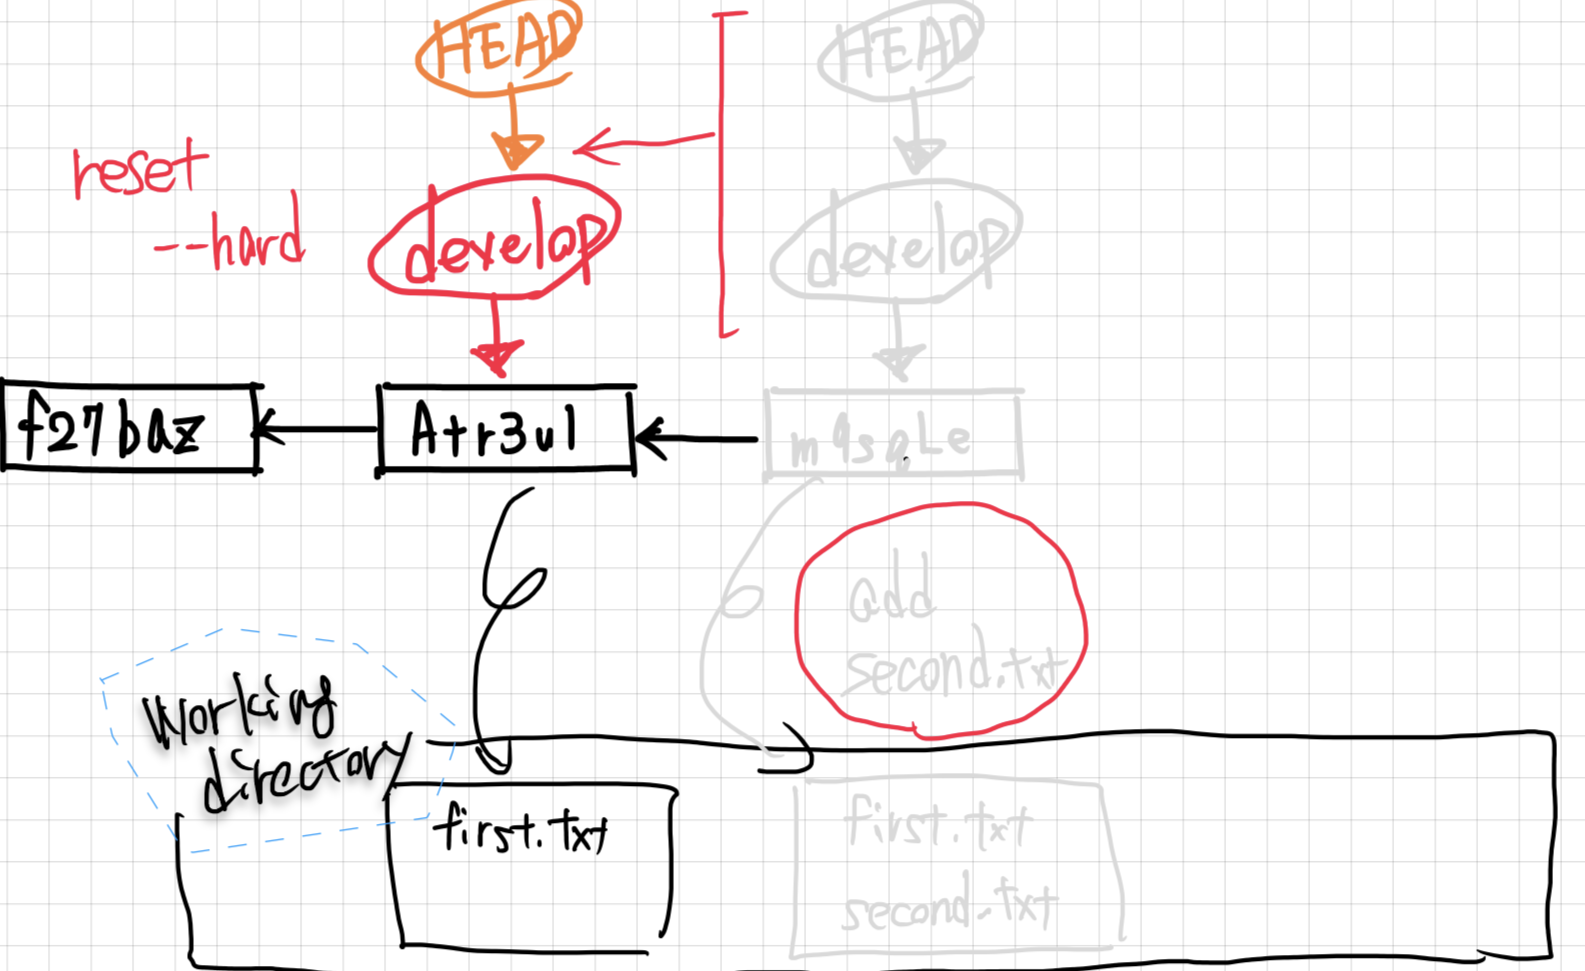 HEAD
HEAD
reset
--hard
develop
develop
f27baz
Atr3ul
m9sqLe
add
second.txt
working
directory
first.txt
first.txt
second.txt